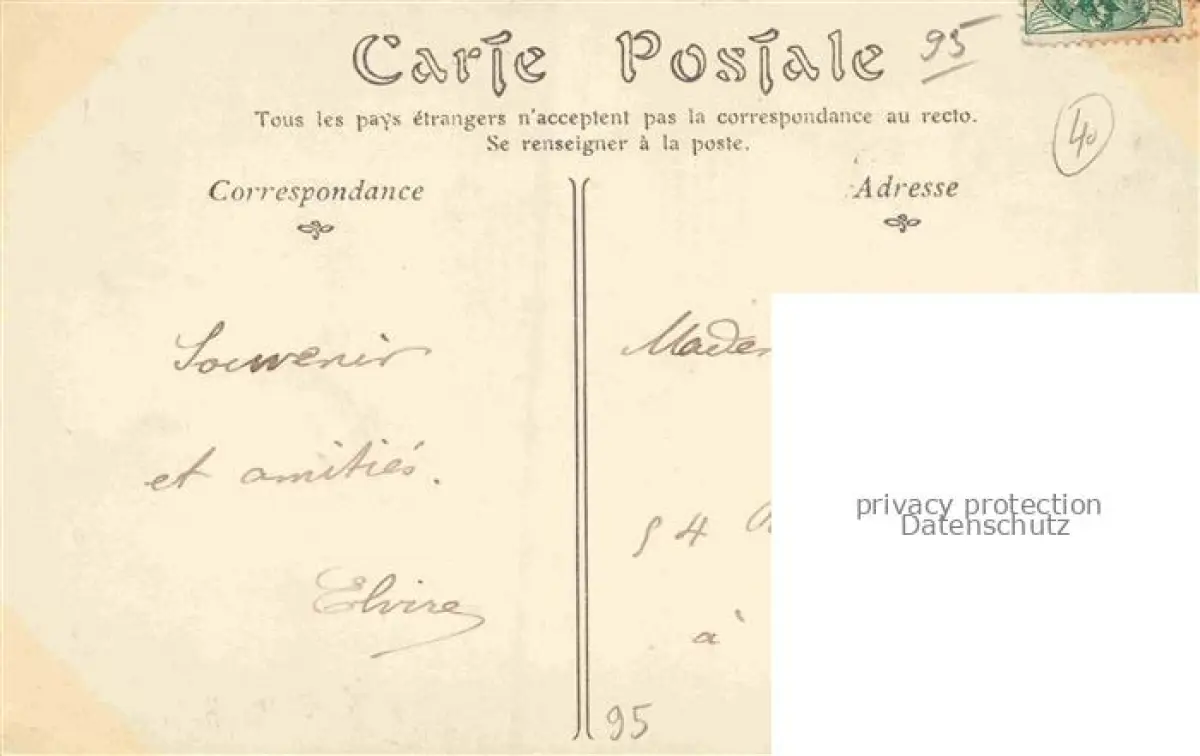 Carte Postale 95
Tous les pays étrangers n'acceptent pas la correspondance au recto.
Se renseigner à la poste.
40
Correspondance
Adresse
Souvenir
et amitiés.
Elvire
54
à
95
privacy protection
Datenschutz